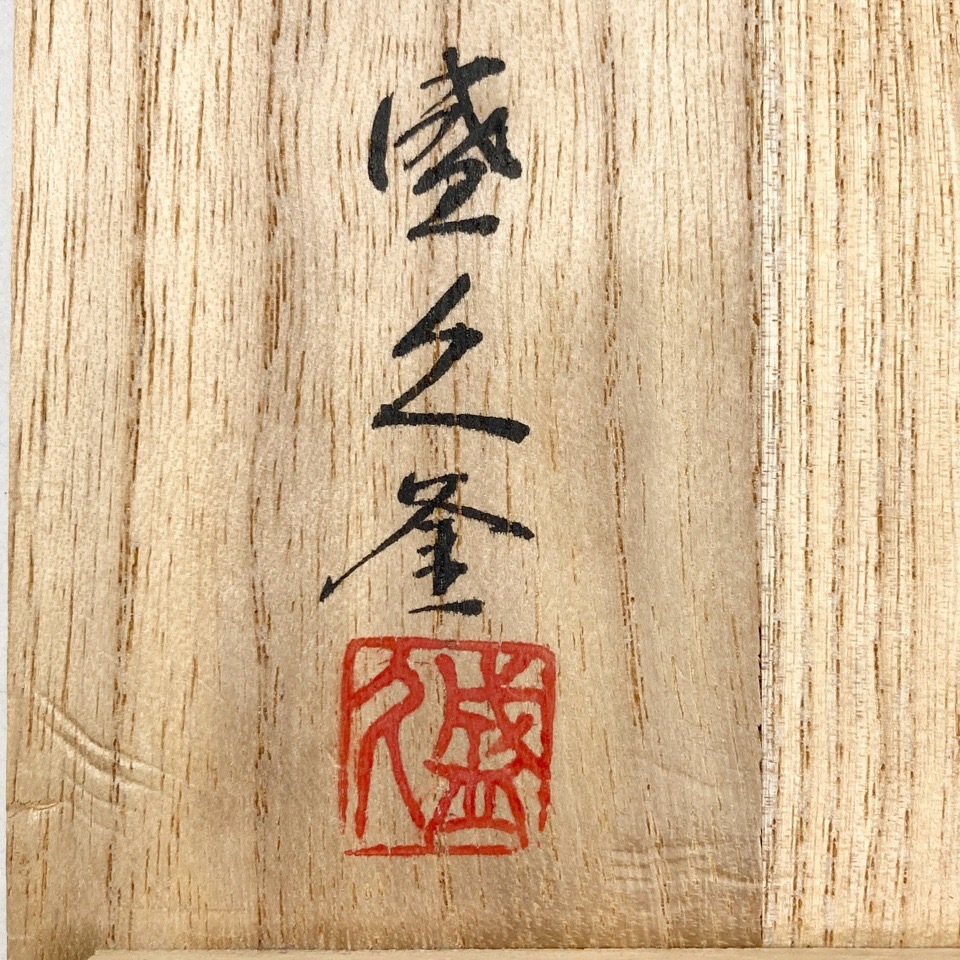 盛久釜
盛久